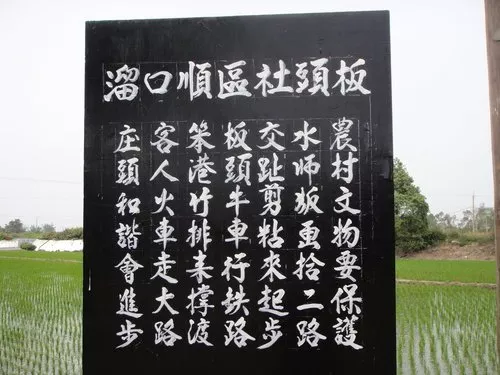 板頭社區順口溜
農村文物要保護
水師畫拾二路
交趾剪粘來起步
板頭牛車行鉄路
笨港竹排來撐渡
客人火車走大路
庄頭和諧會進步